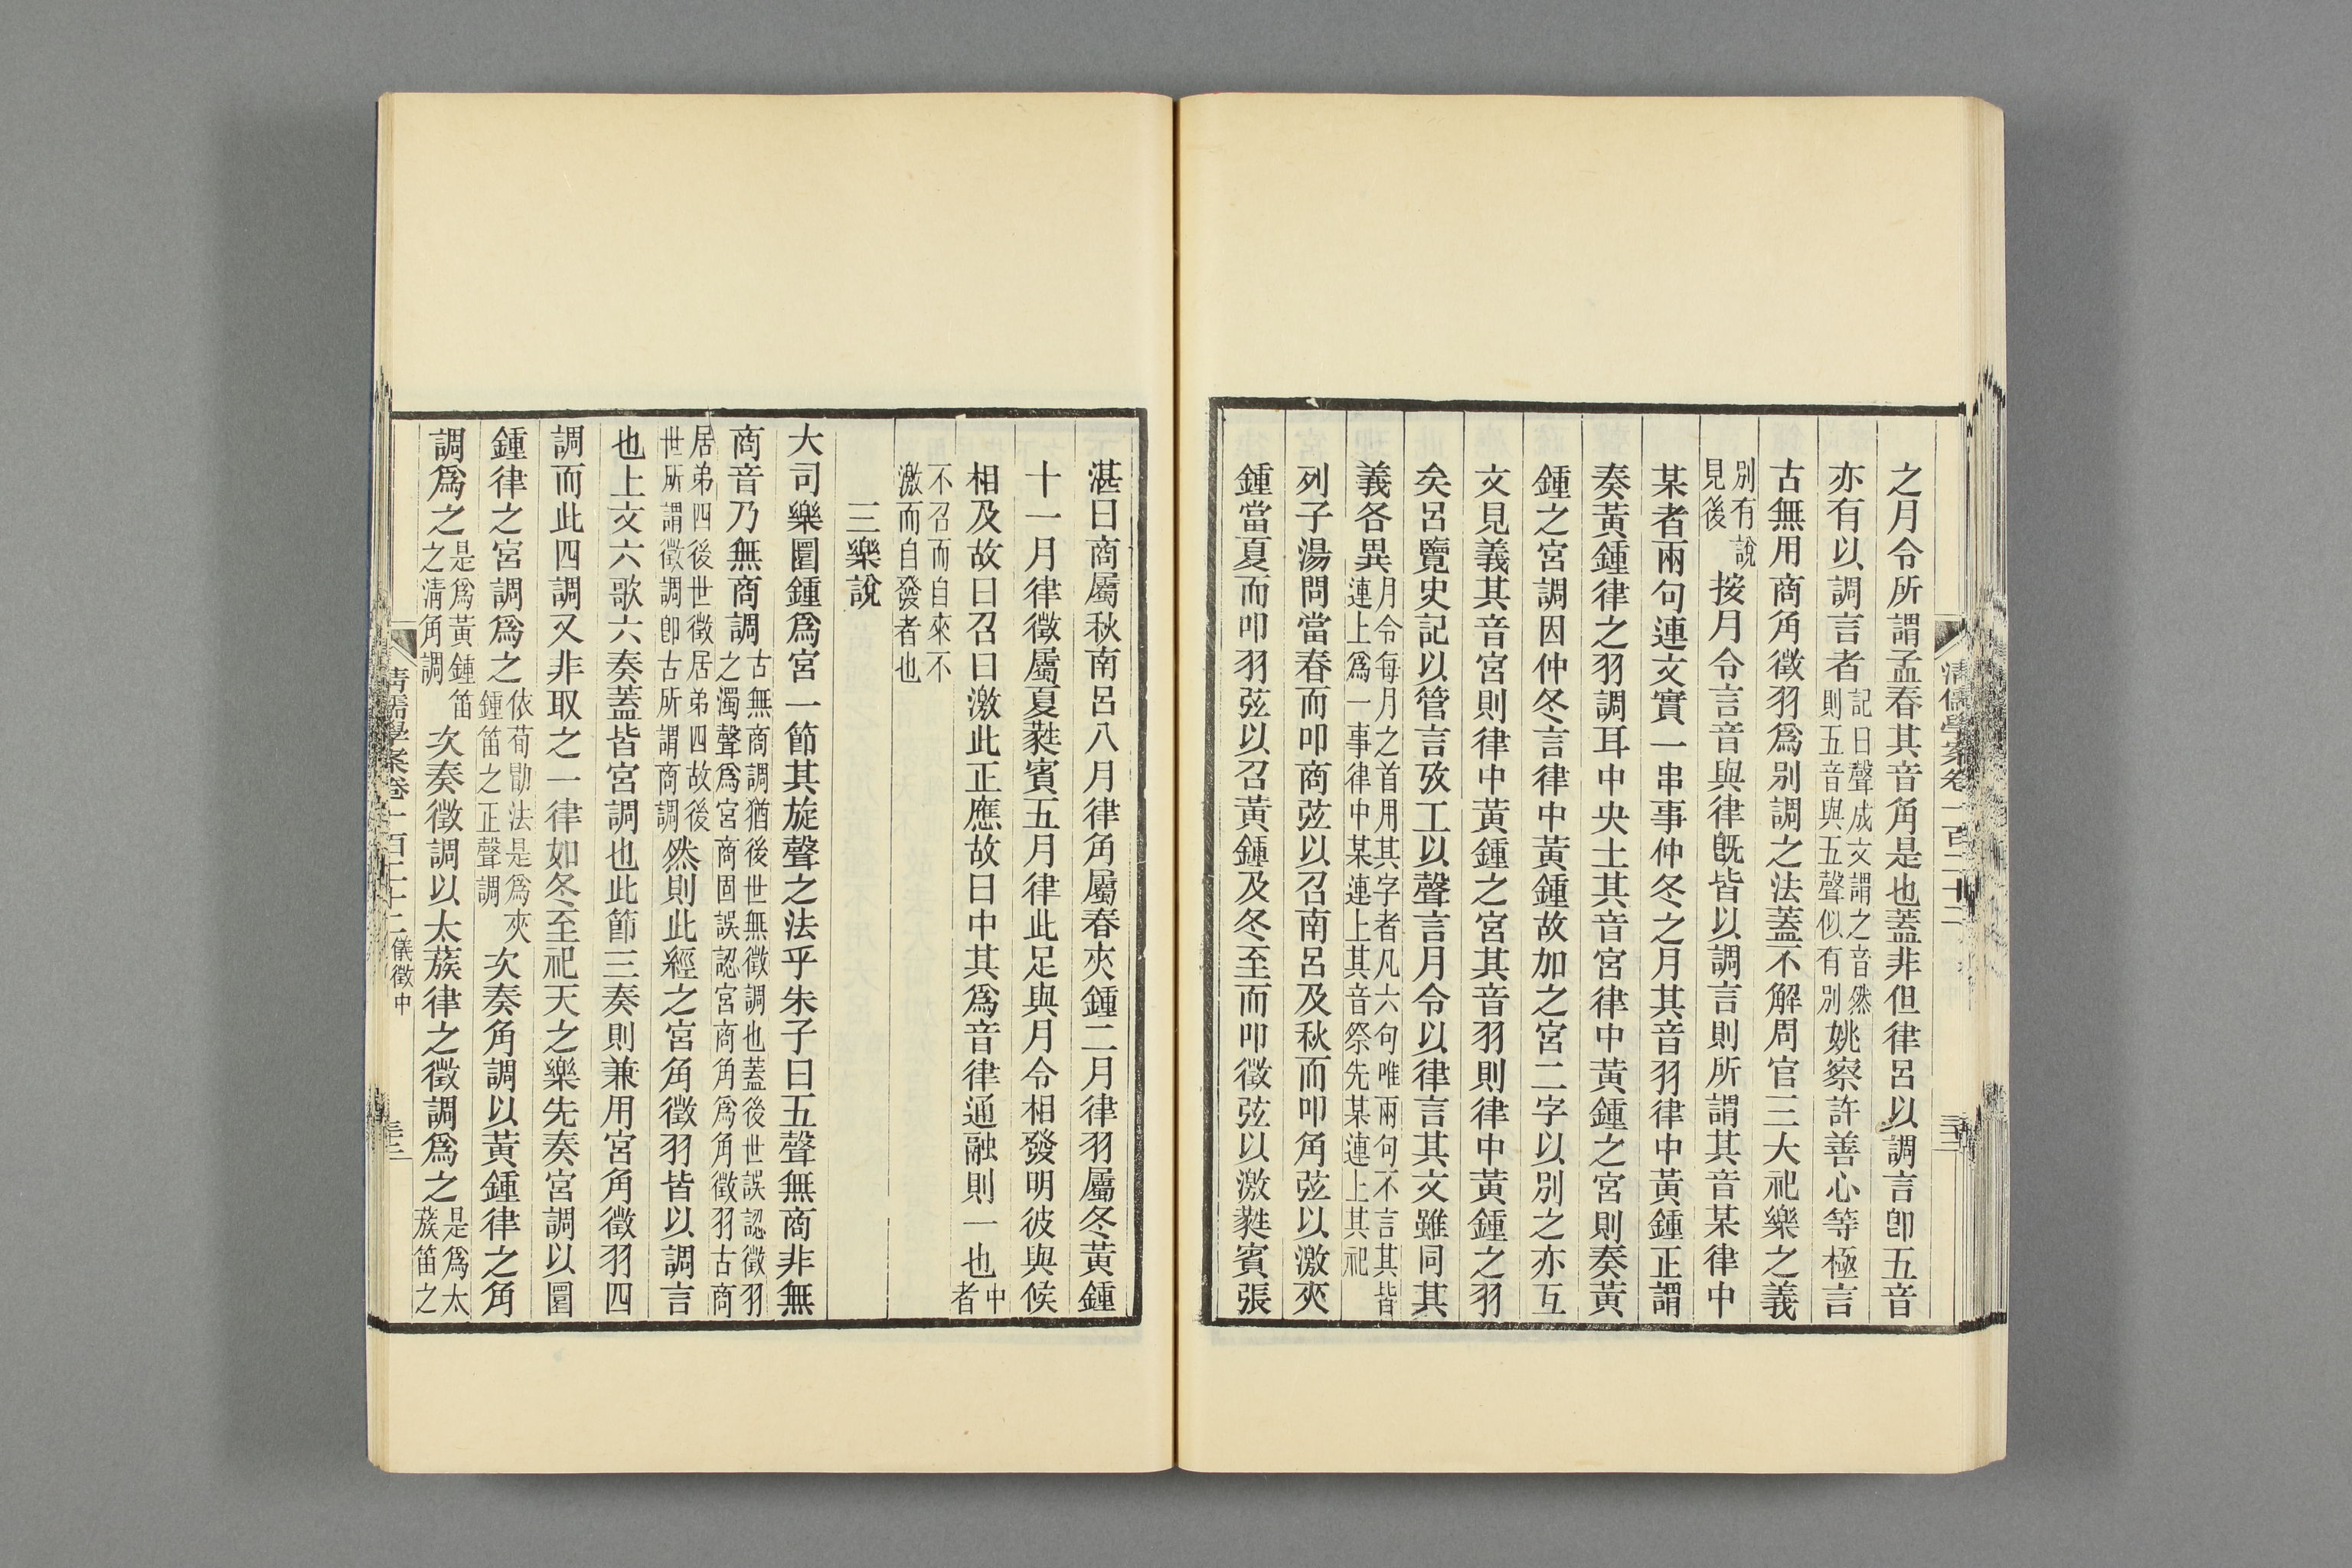 之月令所謂孟春其音角是也蓋非但律呂以調言卽五音
亦有以調言者記曰聲成文謂之音然則五音與五聲似有別姚察許善心等極言
古無用商角徵羽爲別調之法蓋不解周官三大祀樂之義
別有說見後按月令言音與律旣皆以調言則所謂其音某律中
某者兩句連文實一串事仲冬之月其音羽律中黃鍾正謂
奏黃鍾律之羽調耳中央土其音宮律中黃鍾之宮則奏黃
鍾之宮調因仲冬言律中黃鍾故加之宮二字以別之亦互
文見義其音宮則律中黃鍾之宮其音羽則律中黃鍾之羽
矣呂覽史記以管言攷工以聲言月令以律言其文雖同其
義各異月令每月之首用其字者凡六句唯兩句不言其皆連上爲一事律中某連上其音祭先某連上其祀
列子湯問當春而叩商弦以召南呂及秋而叩角弦以激夾
鍾當夏而叩羽弦以召黃鍾及冬至而叩徵弦以激蕤賓張
清儒學案卷一百二十二
湛曰商屬秋南呂八月律角屬春夾鍾二月律羽屬冬黃鍾
十一月律徵屬夏蕤賓五月律此足與月令相發明彼與候
相及故曰召曰激此正應故曰中其爲音律通融則一也中者
不召而自來不激而自發者也
三樂說
大司樂圜鍾爲宮一節其旋聲之法乎朱子曰五聲無商非無
商音乃無商調古無商調猶後世無徵調也蓋後世誤認徵羽之濁聲爲宮商固誤認宮商角爲角徵羽古商
居弟四後世徵居弟四故後世所謂徵調卽古所謂商調然則此經之宮角徵羽皆以調言
也上文六歌六奏蓋皆宮調也此節三奏則兼用宮角徵羽四
調而此四調又非取之一律如冬至祀天之樂先奏宮調以圜
鍾律之宮調爲之依荀勖法是爲夾鍾笛之正聲調次奏角調以黃鍾律之角
調爲之是爲黃鍾笛之清角調次奏徵調以太蔟律之徵調爲之是爲太蔟笛之
清儒學案卷一百二十二 儀徵中